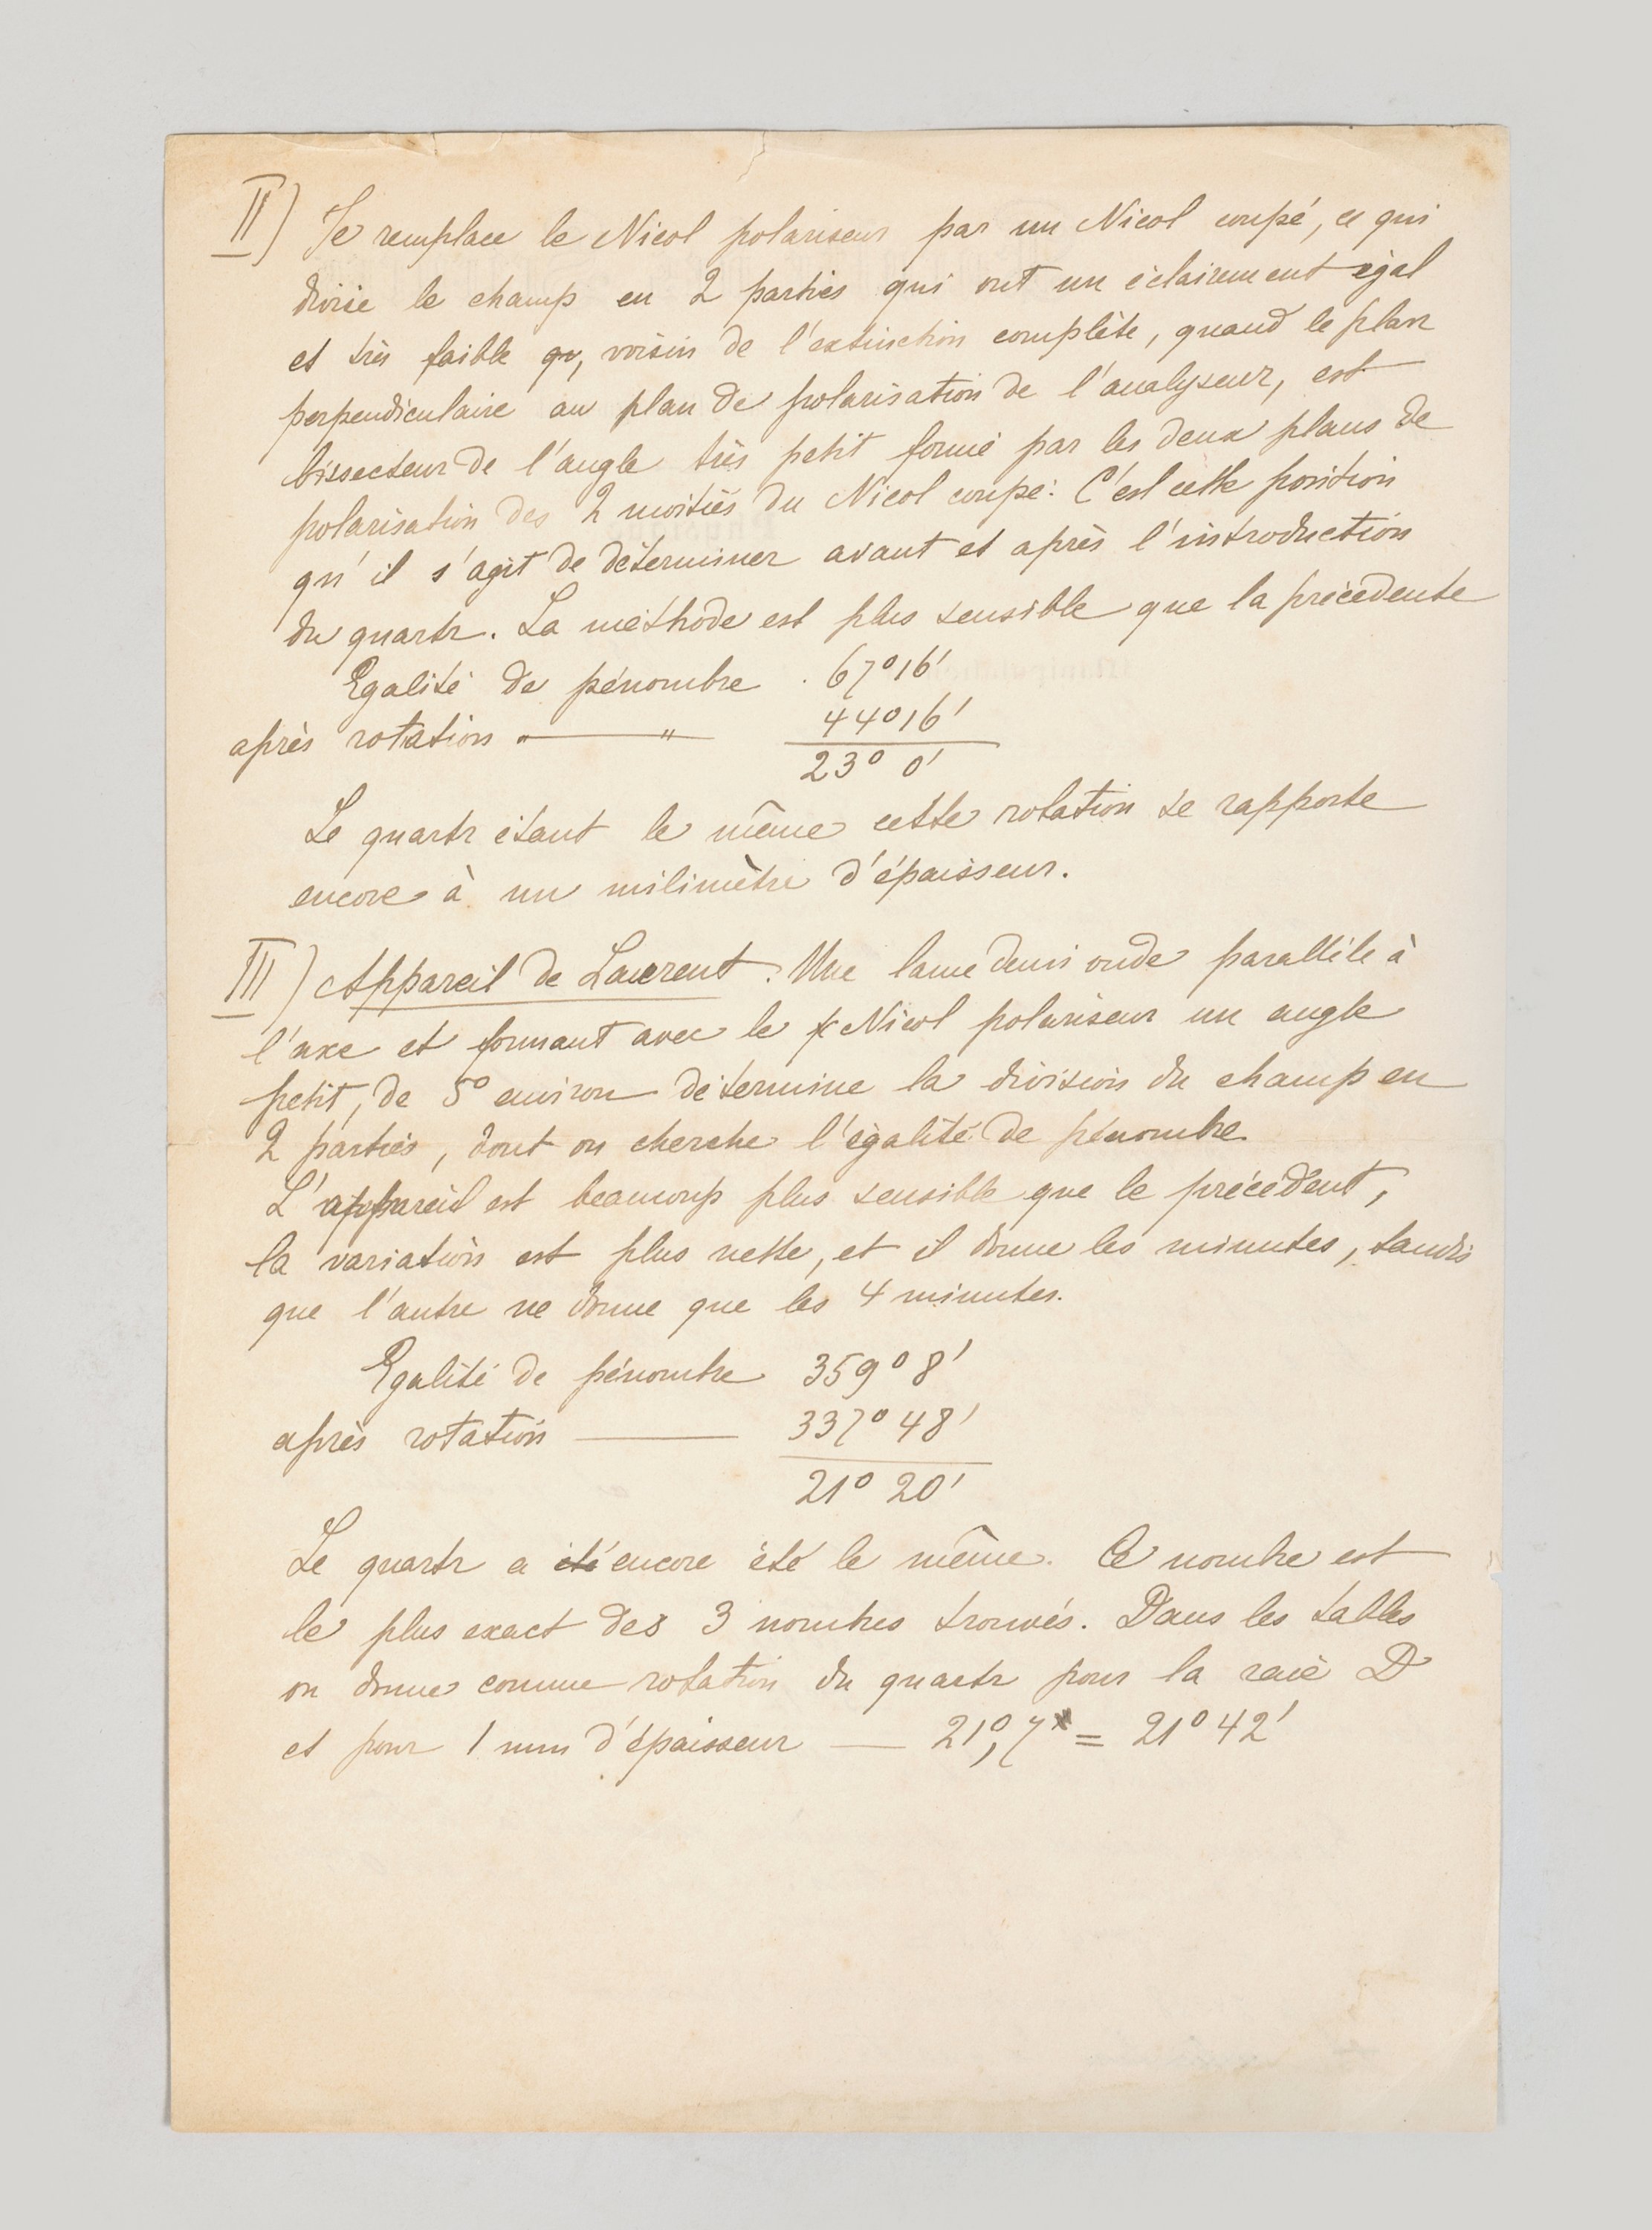 II) Je remplace le Nicol polariseur par un Nicol coupé, ce qui
divise le champ en 2 parties qui ont un éclairement égal
et très faible, voisin de l'extinction complète, quand le plan
perpendiculaire au plan de polarisation de l'analyseur, est
bissecteur de l'angle très petit formé par les deux plans de
polarisation des 2 moitiés du Nicol coupé. C'est cette position
qu'il s'agit de déterminer avant et après l'introduction
du quartz. La méthode est plus sensible que la précédente
Egalité de pénombre . 67°16'
après rotation " — " 44°16'
23° 0'
Le quartz étant le même cette rotation se rapporte
encore à un milimètre d'épaisseur.
III) Appareil de Laurent. Une lame demi onde parallèle à
l'axe et formant avec le Nicol polariseur un angle
petit, de 5° environ détermine la division du champ en
2 parties, dont on cherche l'égalité de pénombre
L'appareil est beaucoup plus sensible que le précédent,
la variation est plus nette, et il donne les minutes, tandis
que l'autre ne donne que les 4 minutes.
Egalité de pénombre 359° 8'
après rotation — 337° 48'
21° 20'
Le quartz a été encore été le même. Ce nombre est
le plus exact des 3 nombres trouvés. Dans les tables
on donne comme rotation du quartz pour la raie D
et pour 1 mm d'épaisseur — 21°,7 = 21° 42'